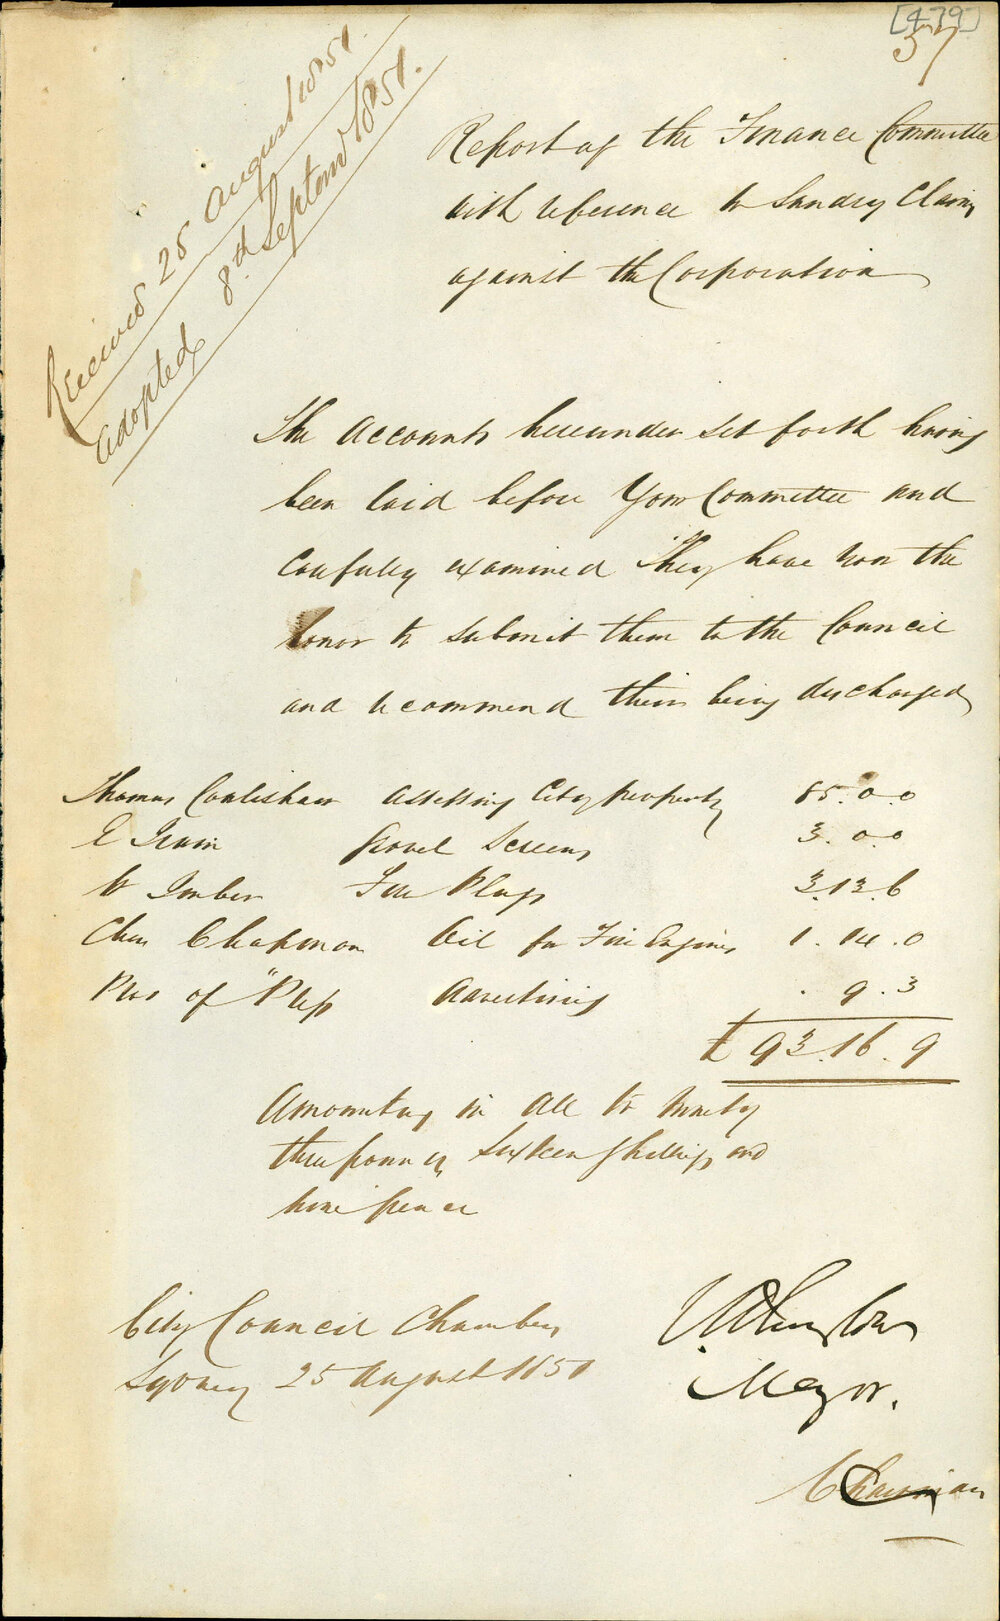 [479]
37
Received 25 August 1851.
Adopted 8th Septemr 1851.
Report of the Finance Committee
with reference to Sundry Claims
against the Corporation
The Accounts hereunder set forth having
been laid before Your Committee and
Carefully examined They have now the
honor to submit them to the Council
and recommend their being discharged
Thomas Cowlishaw Assessing City property 85.0.0
E Irwin Gravel Screens 3.0.0
W Imber Fire Plugs 3.13.6
Chas Chapman Oil for Fire Engines 1.14.0
Pros of "Press Advertising . 9.3
£ 93.16.9
Amounting in all to ninety
three pounds Sixteen Shillings and
nine pence
City Council Chambers
Sydney 25 August 1851
Mayor.
Chairman